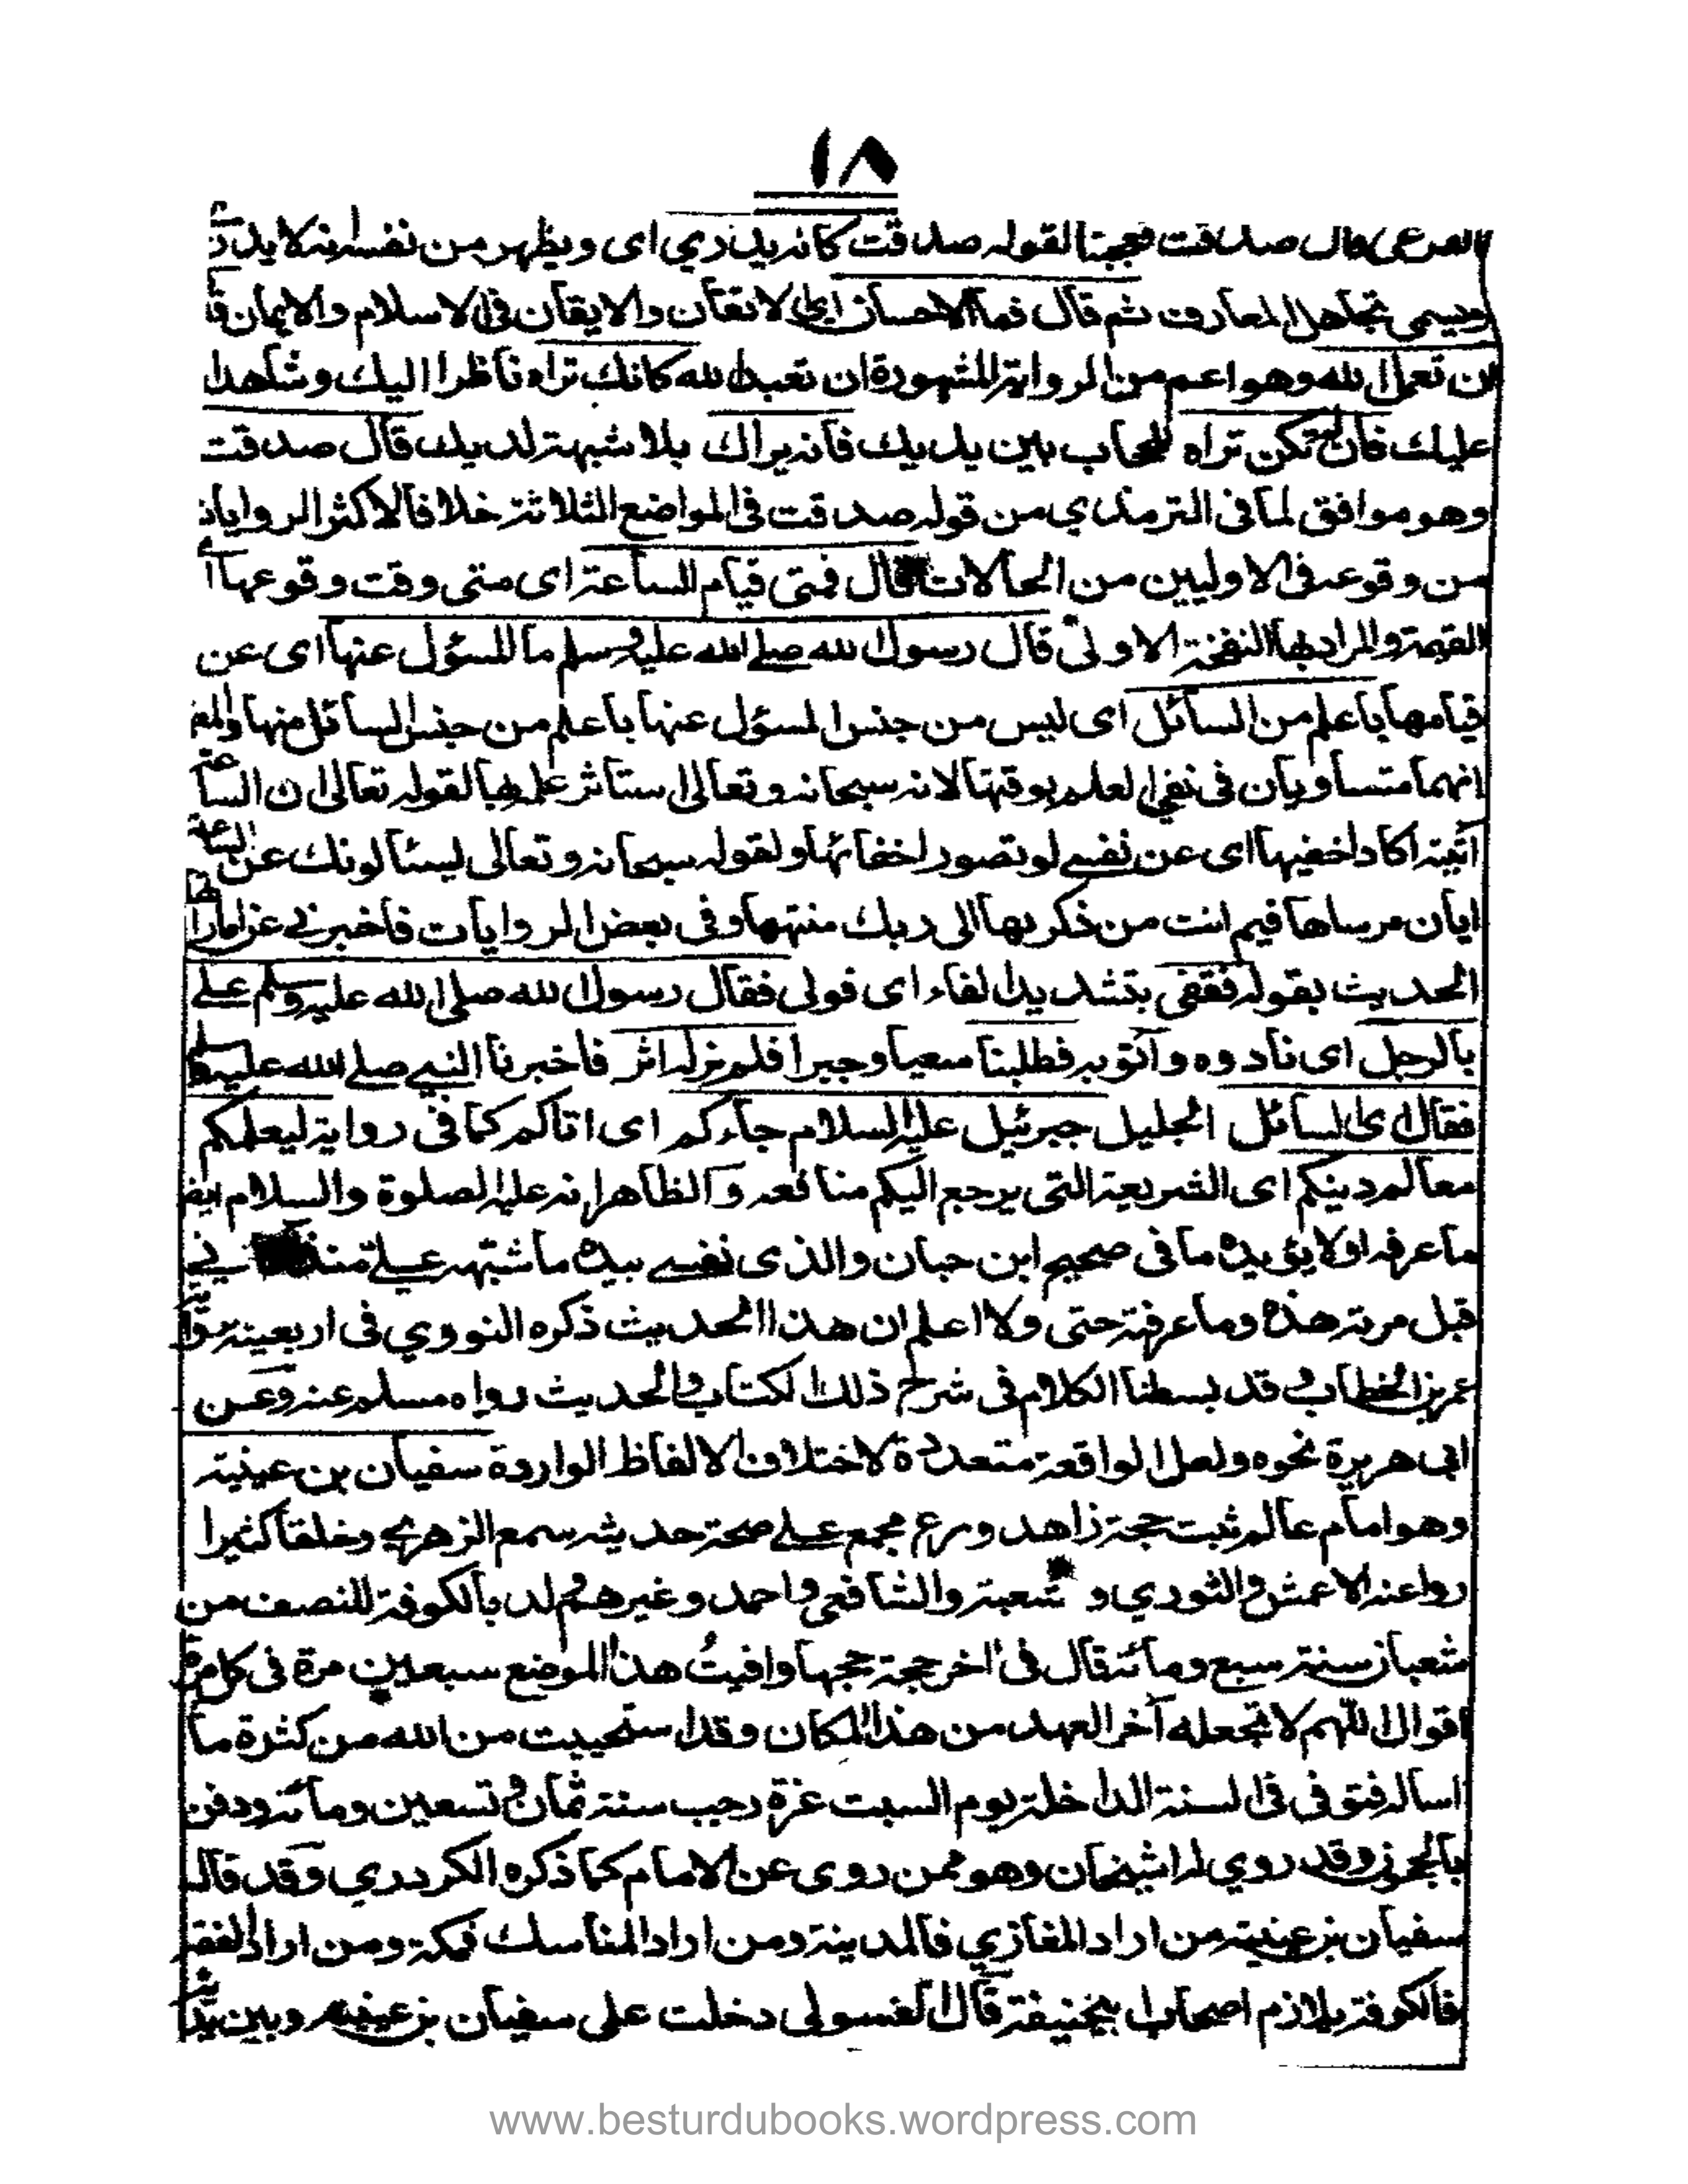 ١٨
قال صدقت فعجبنا لقوله صدقت كانه يدري اى ويظهر من نفسه انه لا يدر
ويسمى تجاهل المعارف ثم قال فما الاحسان اى الاتقان والايقان فى الاسلام والايمان قا
ان تعمل لله وهو اعم من الرواية المشهورة ان تعبد الله كانك تراه ناظرا اليك وشاهدا
عليك فان لم تكن تراه للحجاب بين يديك فانه يراك بلا شبهة لديك قال صدقت
وهو موافق لما فى الترمذي من قوله صدقت فى المواضع الثلاثة خلافا لاكثر الروايات
من وقوعه فى الاوليين من الحالات قال فمتى قيام الساعة اى متى وقت وقوعها
القيمة والمراد بها النفخة الاولى قال رسول الله صلى الله عليه وسلم ما المسؤل عنها اى عن
قيامها باعلم من السائل اى ليس من جنس المسؤل عنها باعلم من جنس السائل منها
انهما متساويان فى نفي العلم بوقتها لانه سبحانه وتعالى استاثر علمها لقوله تعالى ان الساعة
آتية اكاد اخفيها اى عن نفسي لو تصور اخفائها ولقوله سبحانه وتعالى يسئلونك عن الساعة
ايان مرساها فيم انت من ذكرىها الى ربك منتهها وفى بعض الروايات فاخبرني عن اماراتها
الحديث بقوله فقفى بتشديد الفاء اى فولى فقال رسول الله صلى الله عليه وسلم على
بالرجل اى نادوه وآتو به فطلبنا سعيا وجبرا فلم نر له اثر فاخبرنا النبي صلى الله عليه وسلم
فقال اى السائل الجليل جبرئيل عليه السلام جاءكم اى اتاكم كما فى رواية ليعلمكم
معالم دينكم اى الشريعة التى يرجع اليكم منافعه والظاهر انه عليه الصلوة والسلام ايضا
ما عرفه اولا يؤيده ما فى صحيح ابن حبان والذى نفسي بيده ما شبه علي منذ
قبل مرته هذه وما عرفته حتى ولا اعلم ان هذا الحديث ذكره النووي فى اربعينه
عمر بن الخطاب وقد بسطنا الكلام فى شرح ذلك الكتاب والحديث رواه مسلم عنه وعن
ابى هريرة نحوه ولعل الواقعة متعددة لاختلاف الالفاظ الواردة سفيان بن عيينة
وهو امام عالم ثبت حجة زاهد ورع مجمع على صحة حديثه سمع الزهري وخلقا كثيرا
روا عنه الاعمش والثوري و شعبة والشافعي واحمد وغيرهم ولد بالكوفة للنصف من
شعبان سنة سبع ومائة قال فى اخر حجة حجها وافيتُ هذا الموضع سبعين مرة فى كل مرة
اقول اللهم لا تجعله آخر العهد من هذا المكان وقد استحييت من الله من كثرة ما
اساله فتوفى فى السنة الداخلة يوم السبت غرة رجب سنة ثمان وتسعين ومائة ودفن
بالحجون وقد روي له الشيخان وهو ممن روى عن الامام كما ذكره الكردري وقد قال
سفيان بن عيينة من اراد المغازي فالمدينة ومن اراد المناسك فمكة ومن اراد الفقه
فالكوفة يلازم اصحاب ابيحنيفة قال الغسولى دخلت على سفيان بن عيينه وبين يد
www.besturdubooks.wordpress.com